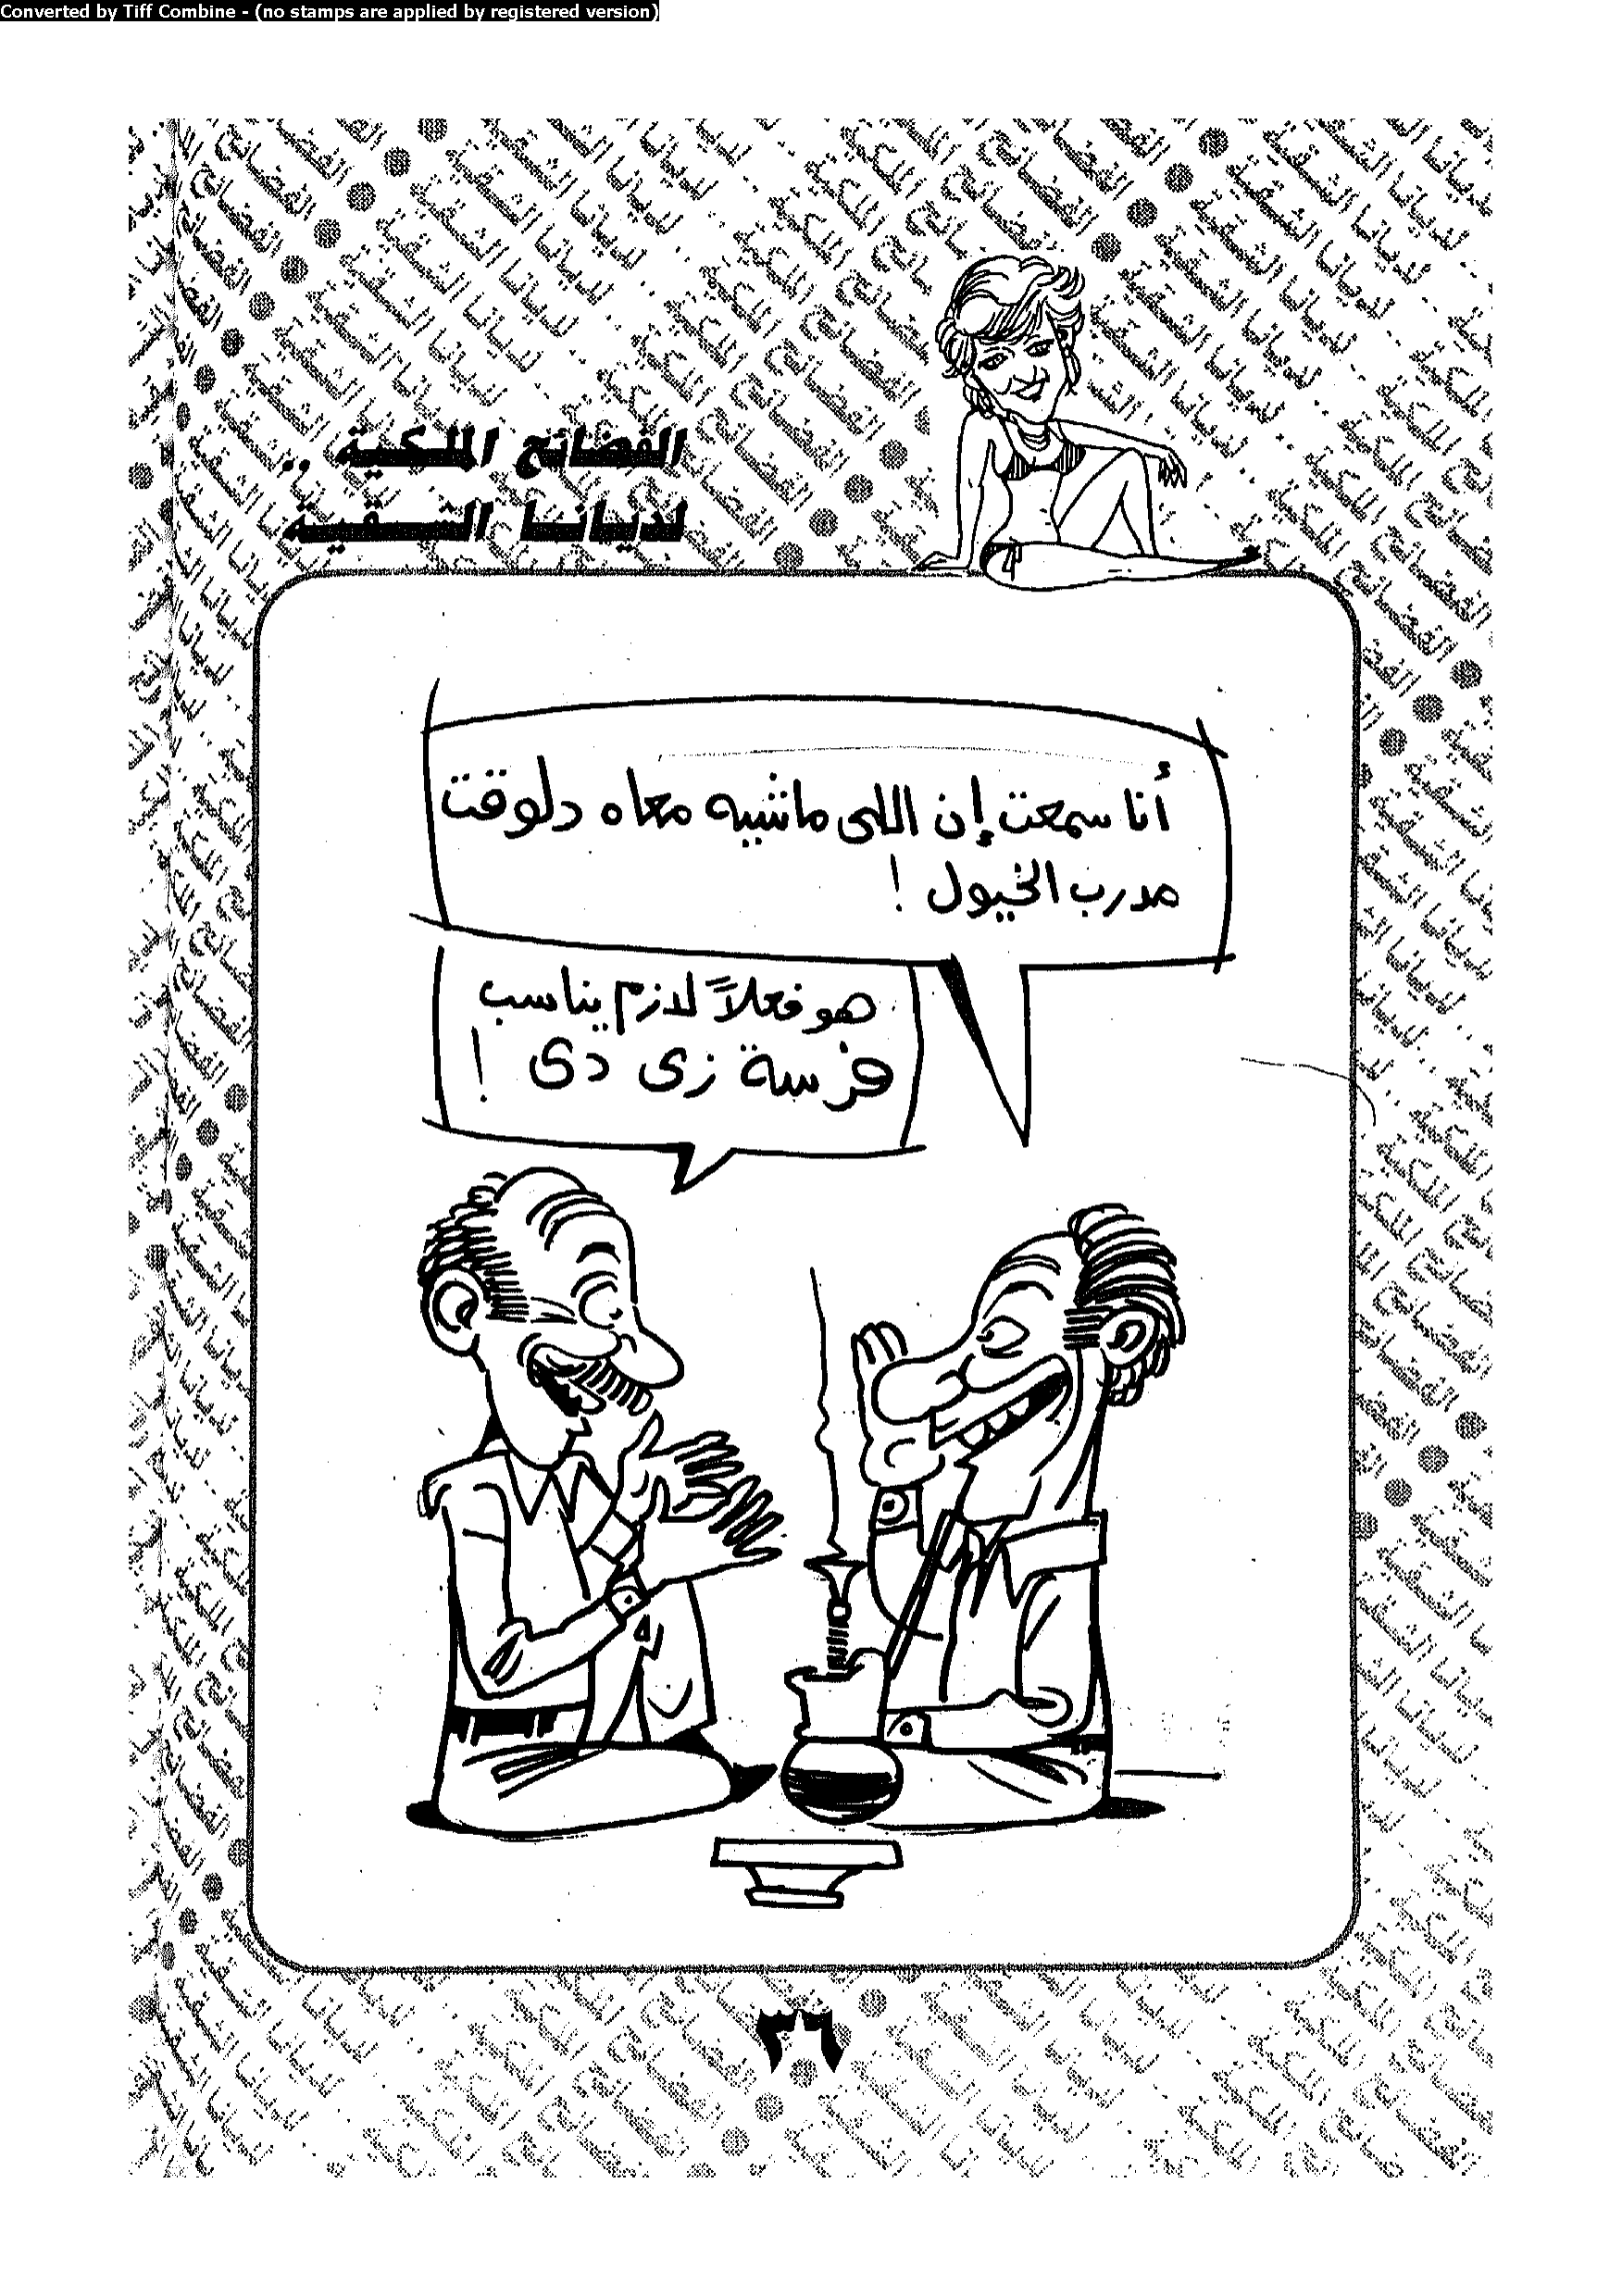 Converted by Tiff Combine - (no stamps are applied by registered version)
الفضائح الملكية ..
لديانا الشقية
أنا سمعت إن اللى ماشيه معاه دلوقت
مدرب الخيول !
هو فعلاً لازم يناسب
فرسة زى دى !
٢٦